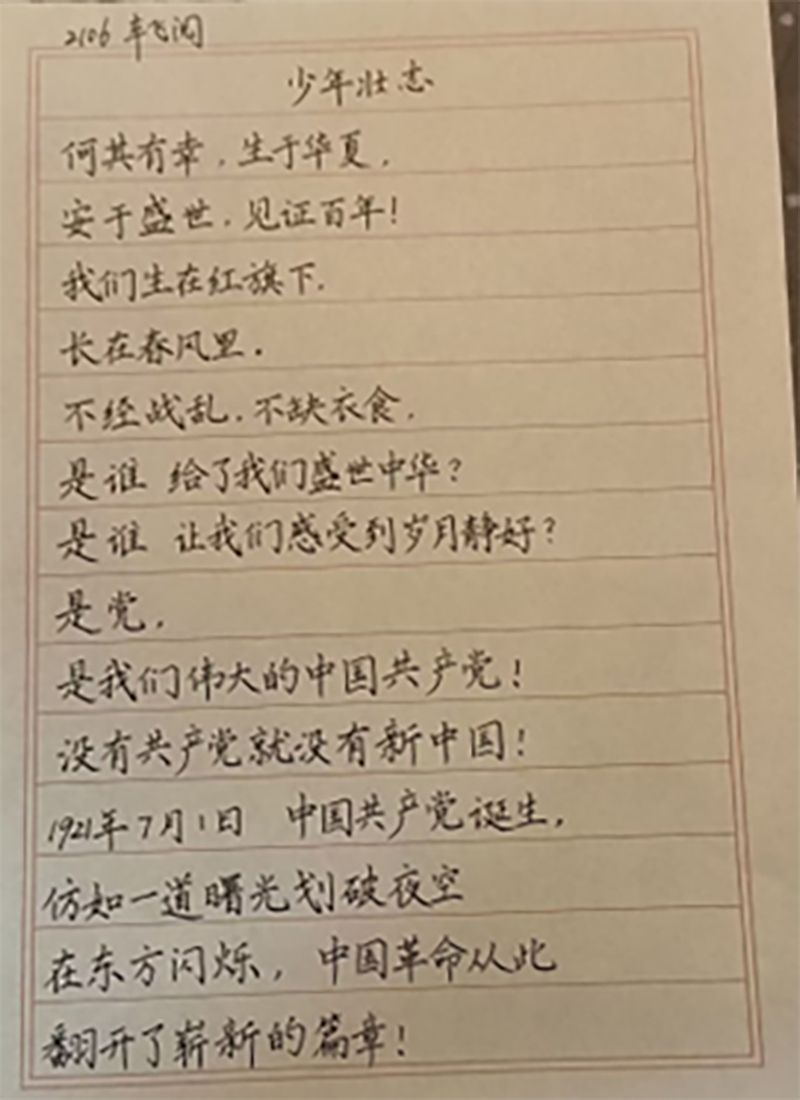 2106 车飞阅
少年壮志
何其有幸，生于华夏，
安于盛世，见证百年！
我们生在红旗下，
长在春风里。
不经战乱，不缺衣食，
是谁 给了我们盛世中华？
是谁 让我们感受到岁月静好？
是党，
是我们伟大的中国共产党！
没有共产党就没有新中国！
1921年7月1日 中国共产党诞生，
仿如一道曙光划破夜空
在东方闪烁，中国革命从此
翻开了崭新的篇章！